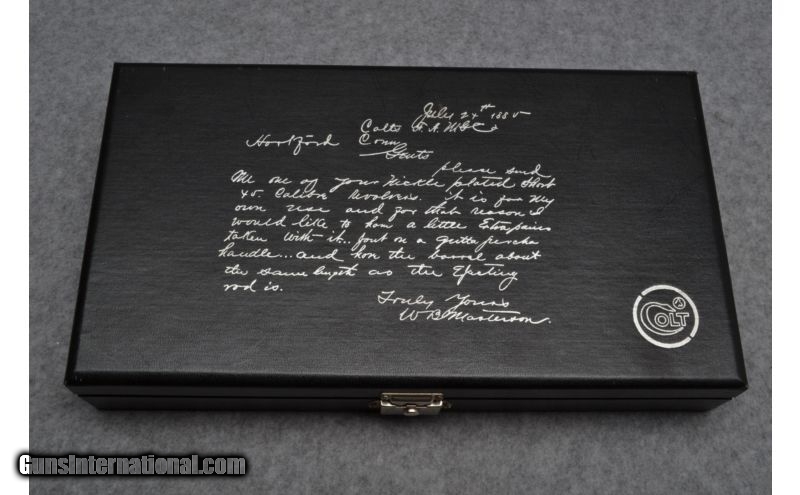 July 24th 1885
Colts F. A. MFG Co
Hartford Conn
Gents
please send
Me one of your Nickle plated Short
45. Calibre Revolvers. It is for My
own use and for that reason I
would like to have a little Extra paines
taken with it... put on a gutta percha
handle... and have the barrel about
the same length as the Ejecting
rod is.
Truly Yours
W B Masterson.
COLT
GunsInternational.com